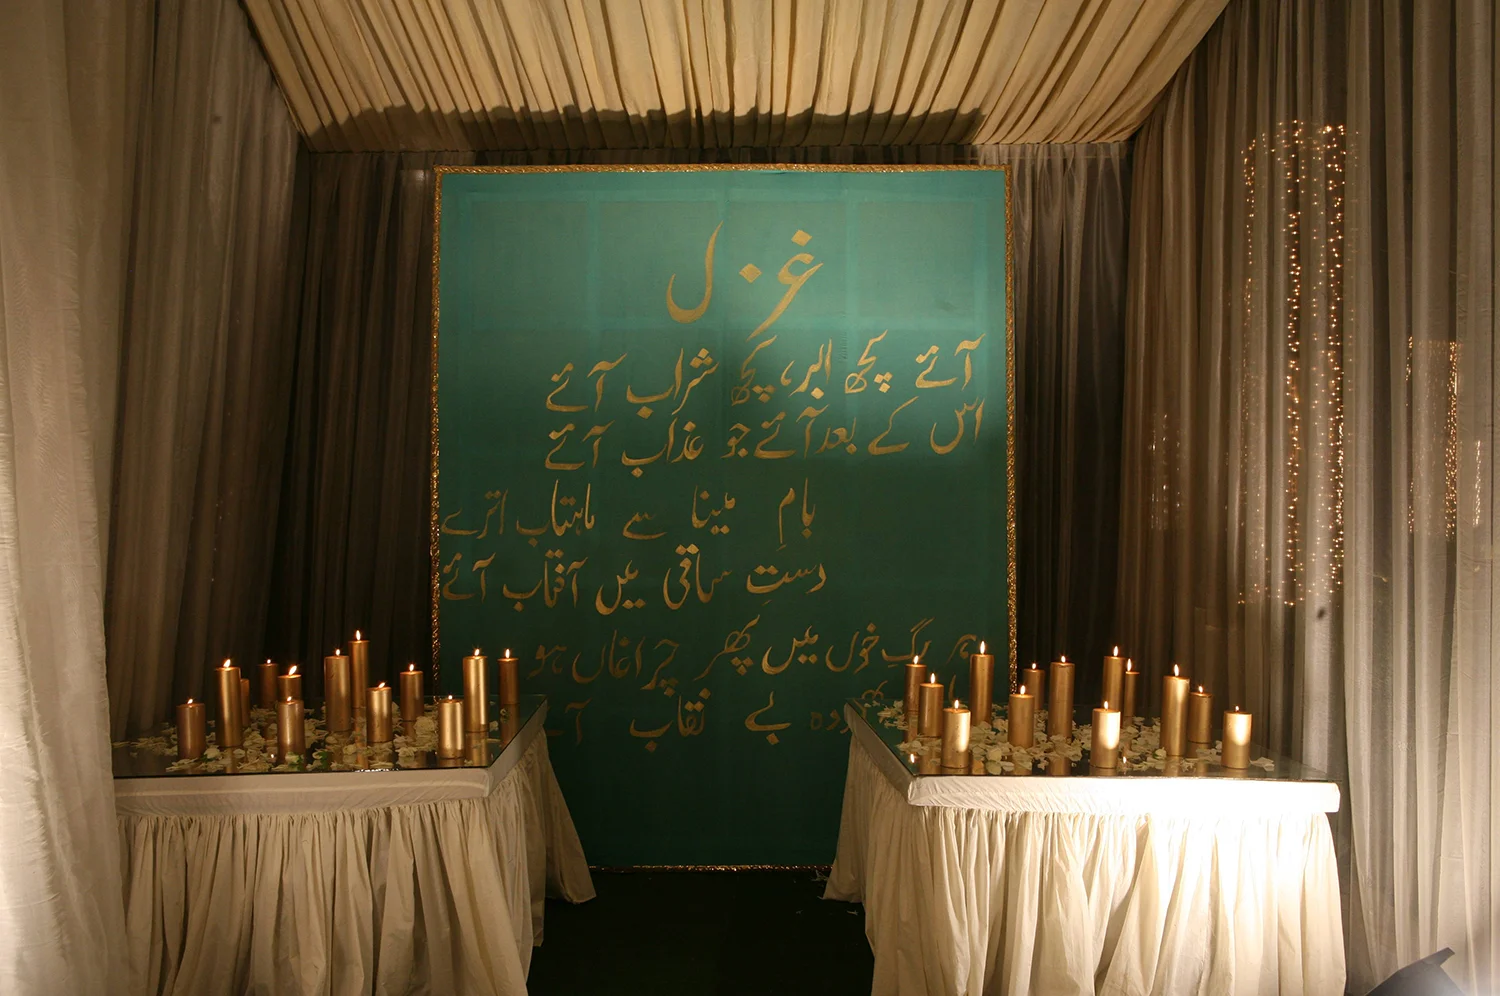 غزل
آئے کچھ ابر، کچھ شراب آئے
اس کے بعد آئے جو عذاب آئے
بامِ مینا سے ماہتاب اترے
دستِ ساقی میں آفتاب آئے
ہر رگِ خوں میں پھر چراغاں ہو
بے نقاب